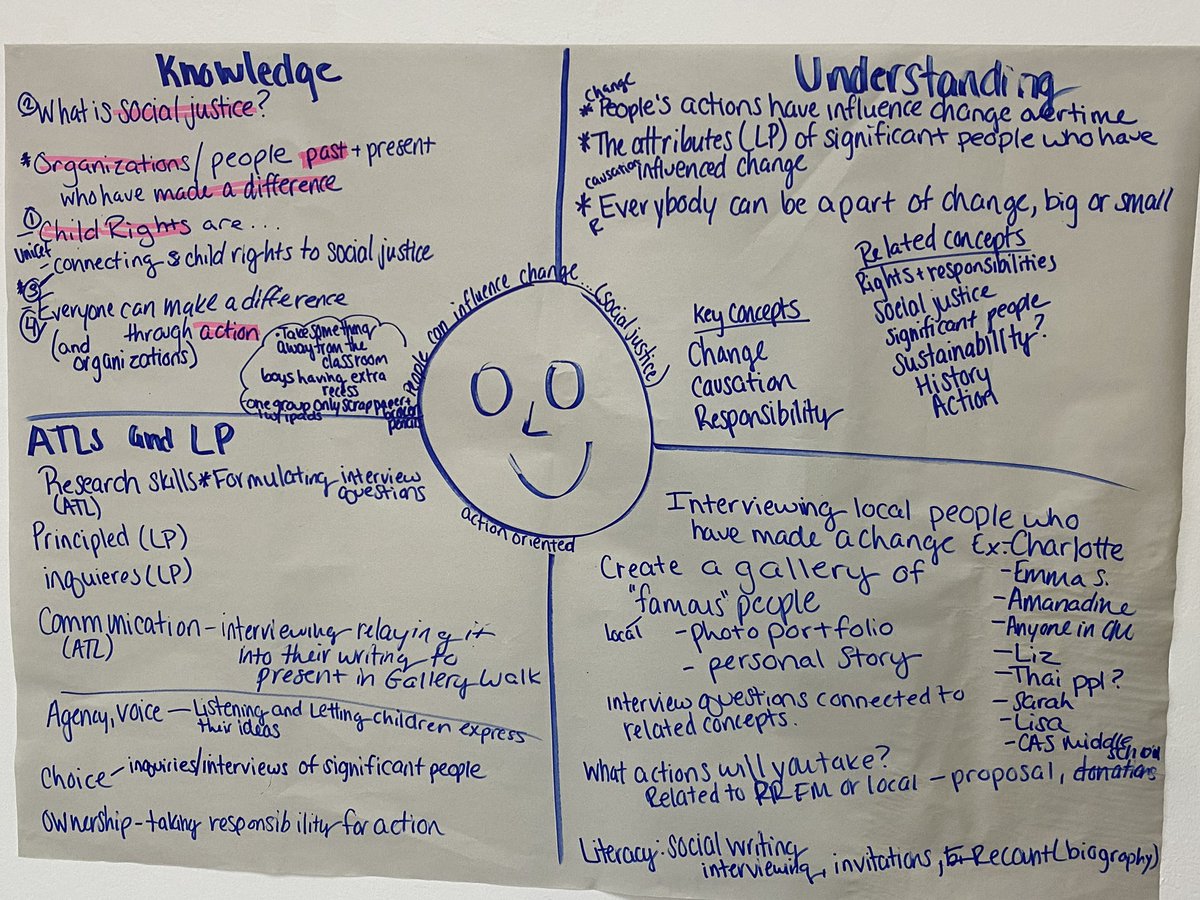 Knowledge
② What is social justice?
* Organizations/people past + present
who have made a difference
① Child Rights are ...
Unicef
- connecting & child rights to social justice
*③
Everyone can make a difference
④ through action
(and
organizations)
• Take something
away from the
classroom
boys having extra
recess
one group only scrap paper +
broken
pencils
w/ipads
People can influence change... (social justice)
action oriented
Understanding
change
* People's actions have influence change overtime
* The attributes (LP) of significant people who have
causation influenced change
* Everybody can be a part of change, big or small
R
Related concepts
Rights + responsibilities
Social justice
significant people
Sustainability?
History
Action
Key concepts
Change
Causation
Responsibility
ATLs and LP
Research skills * Formulating interview
(ATL) questions
Principled (LP)
inquieres (LP)
Communication - interviewing relaying it
(ATL) into their writing to
present in Gallery Walk
Agency, voice — Listening and Letting children express
their ideas
Choice - inquiries/interviews of significant people
Ownership - taking responsibility for action
Interviewing local people who
have made a change Ex: Charlotte
- Emma S.
- Amanadine
- Anyone in our
- Liz
- Thai ppl?
- Sarah
- Lisa
- CAS Middle
school
Create a gallery of
"famous" people
local - photo portfolio
- personal Story
interview questions connected to
related concepts.
What actions will you take?
Related to RREM or local - proposal, donations
Literacy: Social writing
interviewing, invitations, Recount (biography)